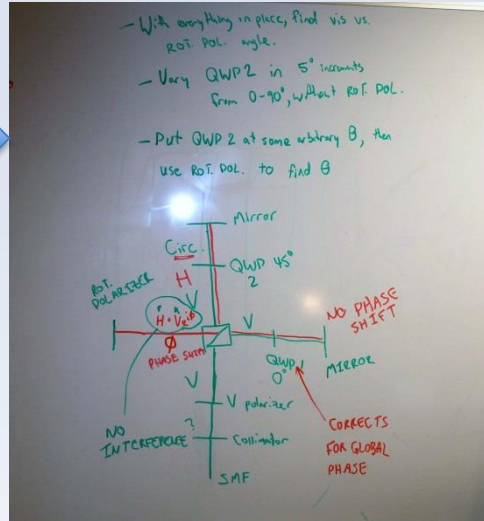 - With everything in place, find vis vs.
ROT. POL. angle.
- Vary QWP2 in 5° increments
from 0-90°, without ROT. POL.
- Put QWP 2 at some arbitrary θ, then
use ROT. POL. to find θ
Mirror
Circ.
QWP 45°
2
H
ROT.
POLARIZER
V
H + Ve^iφ
V
NO PHASE
SHIFT
φ
PHASE SHIFT
QWP 1
0°
MIRROR
V
V polarizer
NO
INTERFERENCE?
Collimator
CORRECTS
FOR GLOBAL
PHASE
SMF